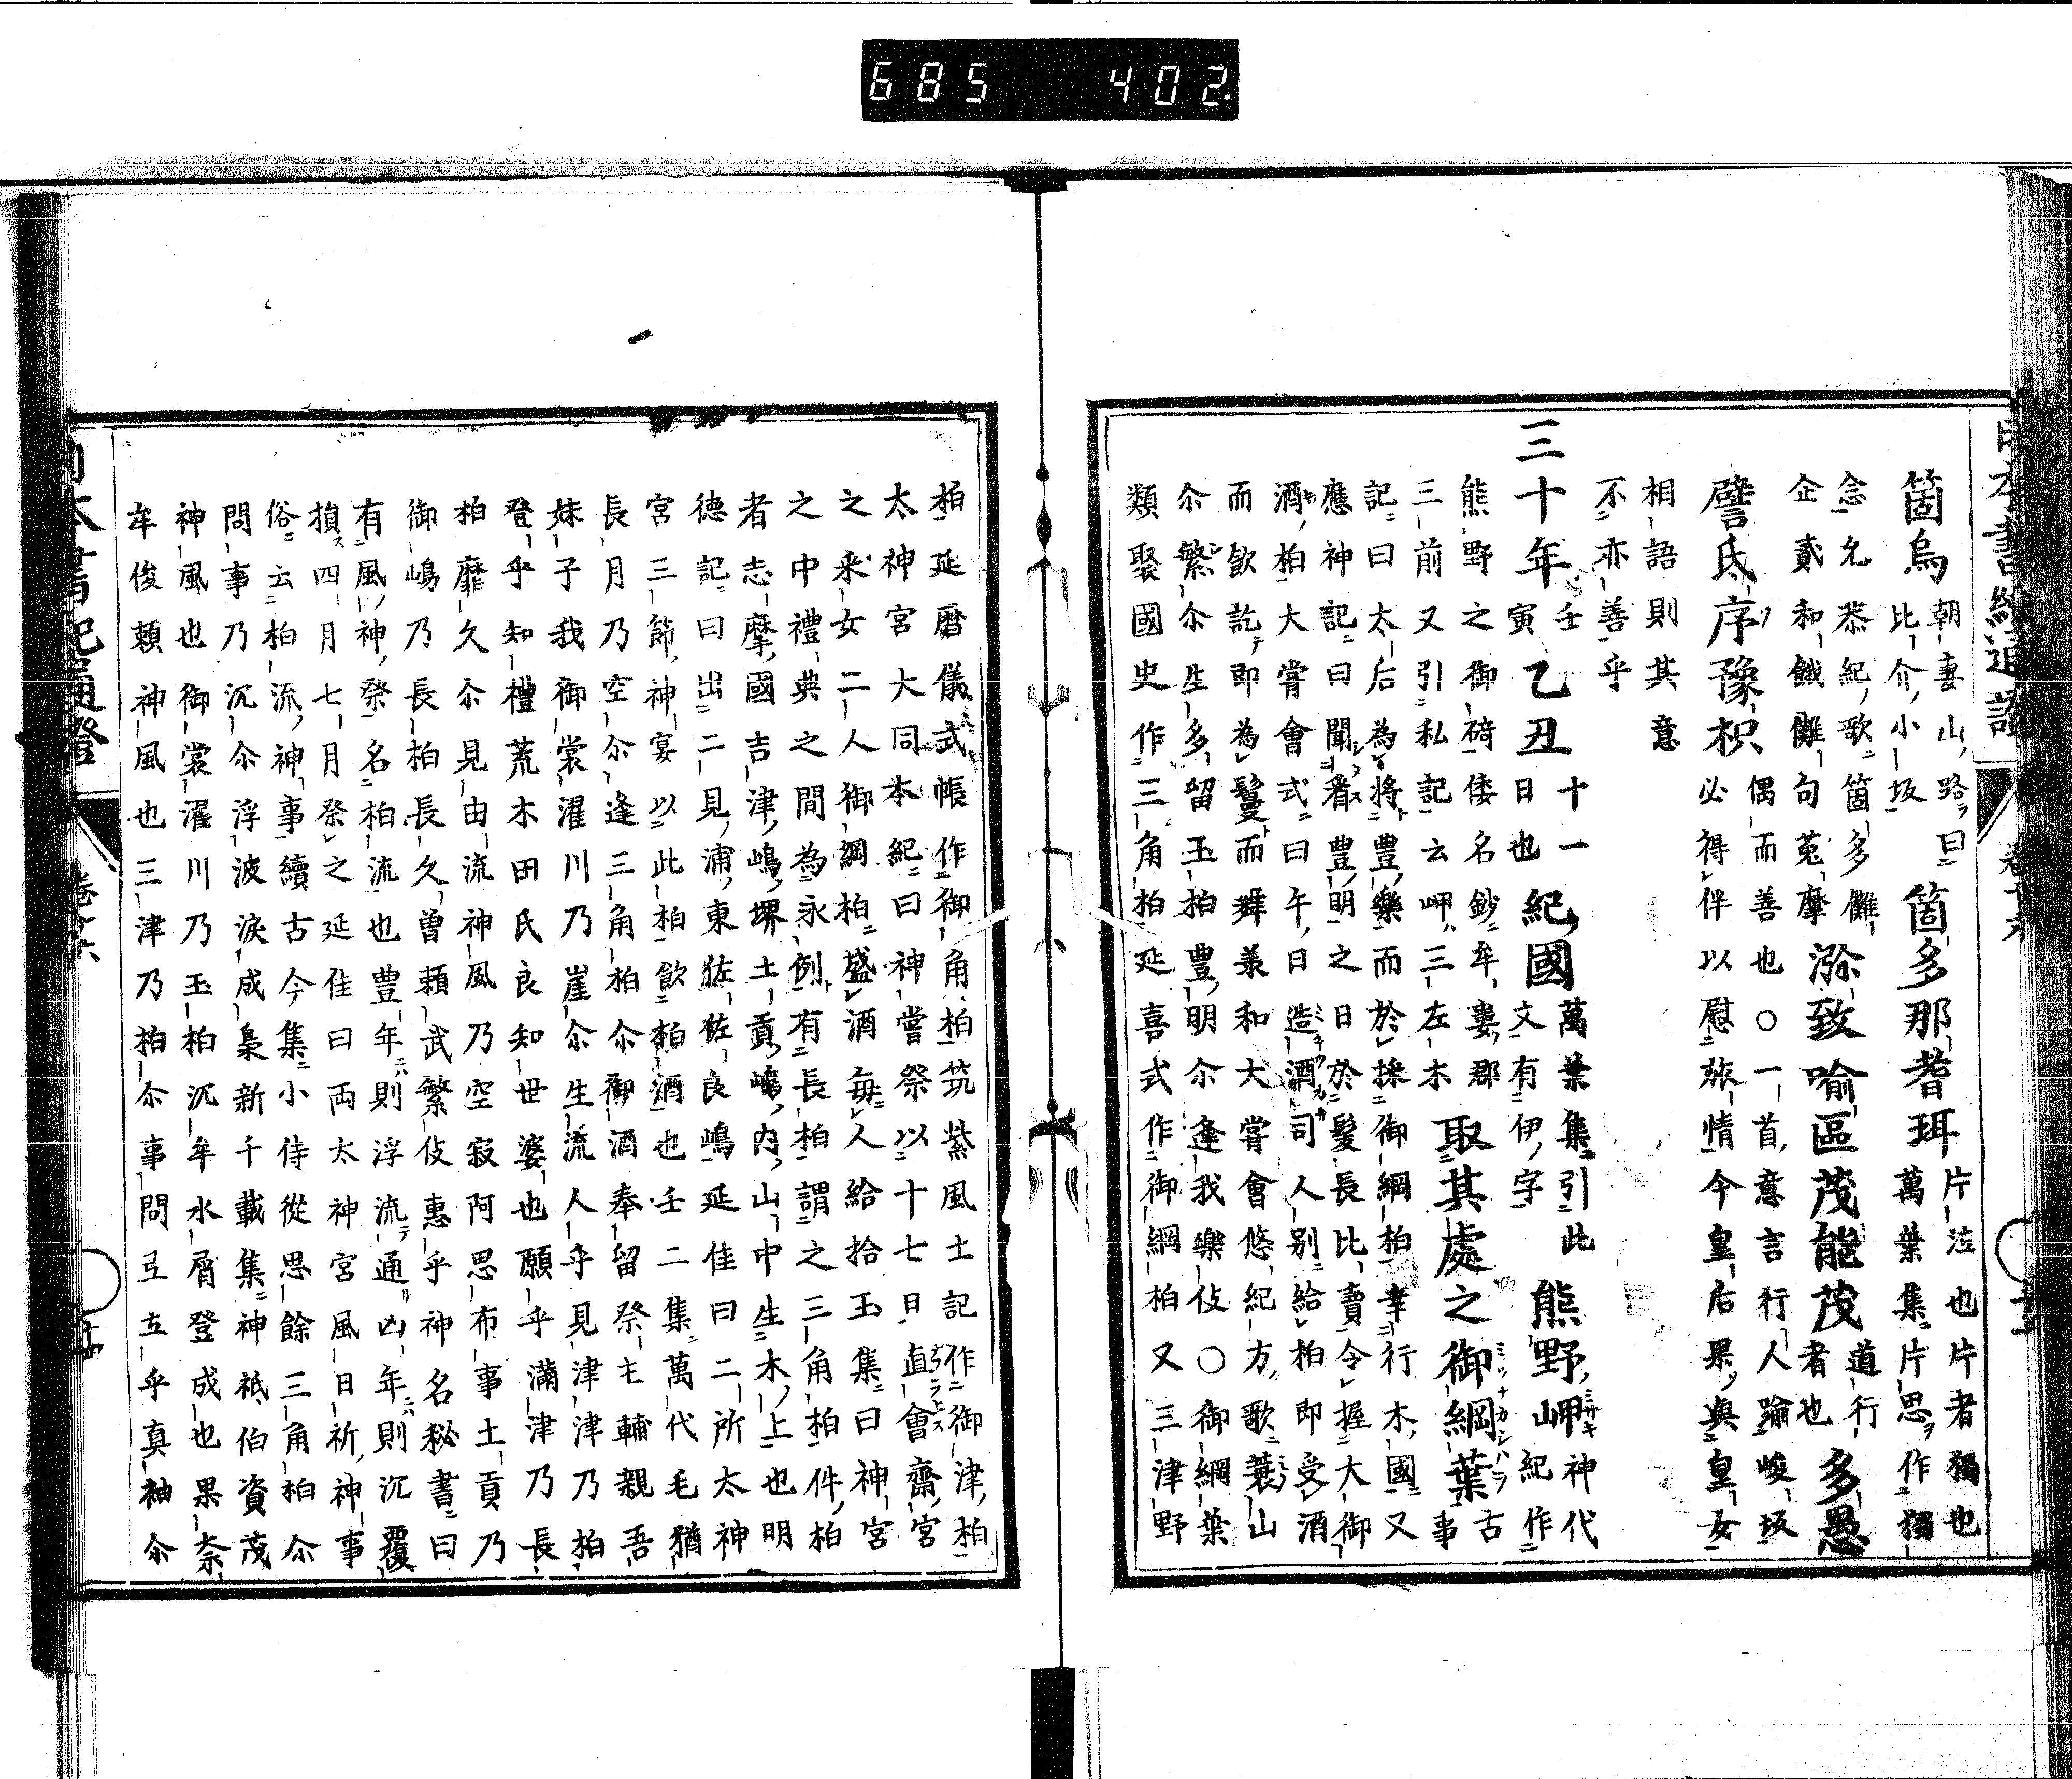 685 402
箇烏朝妻山路曰比介小坂箇多那耆珥片泣也片者獨也萬葉集片思作獨
念允恭紀歌箇多儺企貳和餓儺句菟摩瀰致喻區茂能茂道行者也多愚
譬氐序豫枳偶而善也○一首意言行人踰峻坂必得伴以慰旅情今皇后果與皇女
相語則其意
不亦善乎
三十年壬寅乙丑十一日也紀國萬葉集引此文有伊字熊野岬神代紀作
熊野之御碕倭名鈔牟婁郡三前又引私記云岬三左木取其處之御綱葉古事
記曰太后為將豐樂而於採御綱柏幸行木國又
應神記曰聞看豊明之日於髮長比賣令握大御
酒柏大嘗會式曰午日造酒司人別給柏即受酒
而飲訖即為鬘而舞羕和大嘗會悠紀方歌蓑山
尒繁尒生多留玉柏豊明尒逢我樂伇○御綱葉
類聚國史作三角柏延喜式作御綱柏又三津野
柏延暦儀式帳作御角柏筑紫風土記作御津柏
太神宮大同本紀曰神嘗祭以十七日直會齋宮
之来女二人御綱柏盛酒每人給拾玉集曰神宮
之中禮典之間為永例有長柏謂之三角柏件柏
者志摩國吉津嶋堺土貢嶋内山中生木上也明
德記曰出二見浦東佐佐良嶋延佳曰二所太神
宮三節神宴以此柏飲柏酒也壬二集萬代毛猶
長月乃空尒逢三角柏尒御酒奉留祭主輔親吾
妹子我御裳濯川乃崖尒生流人乎見津津乃柏
登乎知禮荒木田氏良知世婆也願乎滿津乃長
柏靡久尒見由流神風乃空寂阿思布事土貢乃
御嶋乃長柏長久曽賴武繁伎惠乎神名秘書曰
有風神祭名柏流也豊年則浮流通凶年則沉覆
損四月七月祭之延佳曰両太神宮風日祈神事
俗云柏流神事續古今集小侍從思餘三角柏尒
問事乃沉尒浮波淚成梟新千載集神祇伯資茂
神風也御裳濯川乃玉柏沉牟水屑登成也果奈
牟俊頼神風也三津乃柏尒事問弖立乎真袖尒